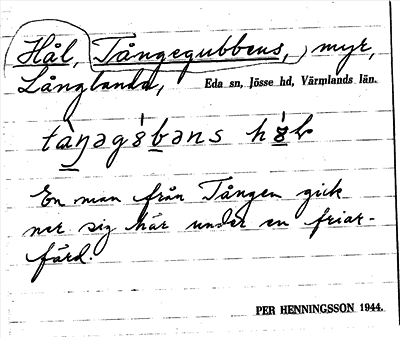 Hål, Tångegubbens, myr,
Långlanda, Eda sn, Jösse hd, Värmlands län.
En man från Tången gick
ner sig här under en friar-
färd.
PER HENNINGSSON 1944.